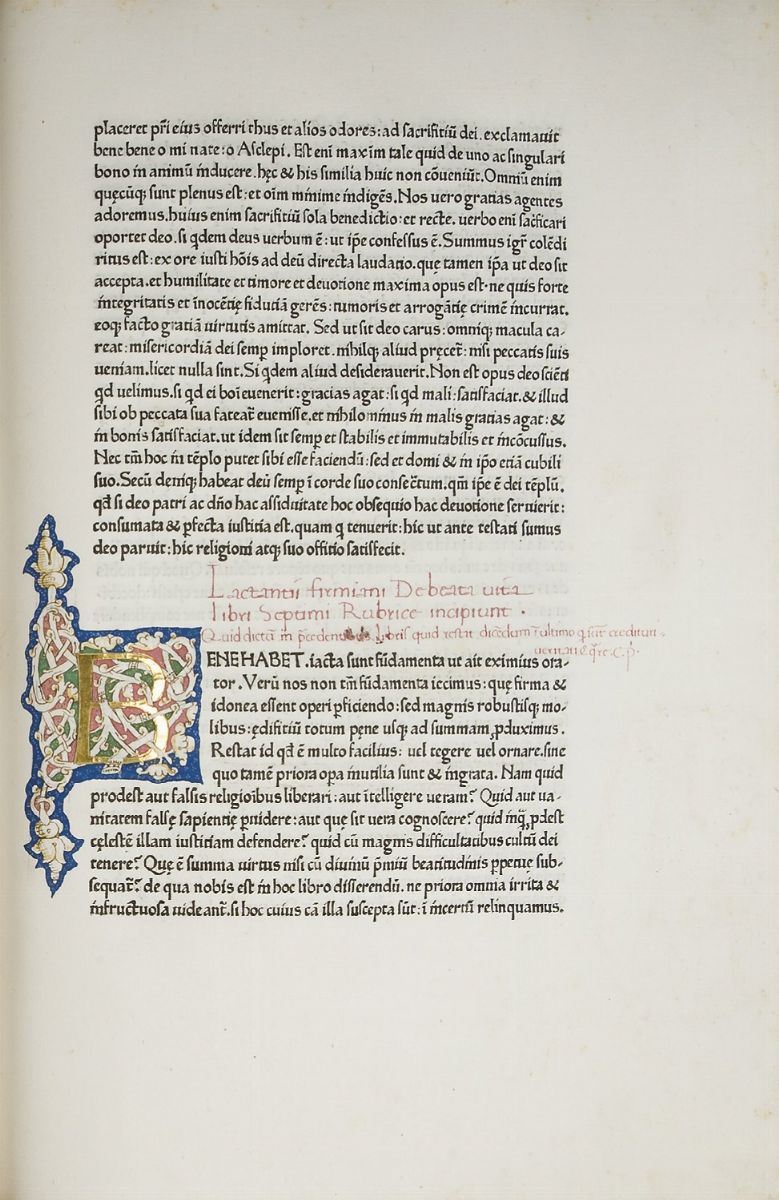 placeret pr̄i eius offerri thus et alios odores: ad sacrifitiū dei. exclamauit
bene bene o mi nate: o Asclepi. Est enī maxīm tale quid de uno ac singulari
bono in animū inducere. hęc & his similia huic non cōueniūt. Omniū enim
quęcūqꝫ sunt plenus est: et oīm minime indigēs. Nos uero gratias agentes
adoremus. huius enim sacrifitiū sola benedictio: et recte. uerbo enī sac̄ficari
oportet deo. si qdem deus uerbum ē: ut ip̄e confessus ē. Summus igr̄ colēdi
ritus est: ex ore iusti hōis ad deū directa laudatio. quę tamen ip̄a ut deo sit
accepta. et humilitate et timore et deuotione maxima opus est. ne quis forte
integritatis et inocētię fiduciā gerēs: tumoris et arrogātię crimē incurrat.
eoqꝫ facto gratiā uirtutis amittat. Sed ut sit deo carus: omniqꝫ macula ca-
reat: misericordiā dei semp imploret. nihilqꝫ aliud pręcet̄: nisi peccatis suis
ueniam. licet nulla sint. Si qdem aliud desiderauerit. Non est opus deo sciēti
qd uelimus. si qd ei boī euenerit: gracias agat: si qd mali: satisfaciat. & illud
sibi ob peccata sua fateat̄ euenisse. et nihilominus in malis gratias agat: &
in bonis satisfaciat. ut idem sit semp et stabilis et immutabilis et incōcussus.
Nec tm̄ hoc in tēplo putet sibi esse faciendū: sed et domi & in ip̄o etiā cubili
suo. Secū deniqꝫ habeat deū semp ī corde suo consec̄tum. qm̄ ip̄e ē dei tēplū.
qd si deo patri ac dn̄o hac assiduitate hoc obsequio hac deuotione seruierit:
consumata & pfecta iustitia est. quam q tenuerit: hic ut ante testati sumus
deo paruit: hic religioni atqꝫ suo offitio satisfecit.
Lactantii firmiani De beata vita
libri Septimi Rubrice incipiunt.
Quid dictū in precedentibus libris quid restat dicedum ī ultimo
BENE HABET. iacta sunt fūdamenta ut ait eximius ora-
tor. Verū nos non tm̄ fūdamenta iecimus: quę firma &
idonea essent operi pficiendo: sed magnis robustisqꝫ mo-
libus: ędifitiū totum pęne usqꝫ ad summam pduximus.
Restat id qd ē multo facilius: uel tegere uel ornare. sine
quo tamē priora opa inutilia sunt & ingrata. Nam quid
prodest aut falsis religioībus liberari: aut ītelligere ueram? Quid aut ua-
nitatem falsę sapientię puidere: aut quę sit uera cognoscere? quid inq̄ pdest
cęlestē illam iustitiam defendere? quid cū magnis difficultatibus cultū dei
tenere? Quę ē summa uirtus nisi cū diuinū pmiū beatitudinis ppetuę sub-
sequat̄? de qua nobis est in hoc libro disserendū. ne priora omnia irrita &
infructuosa uideant̄. si hoc cuius cā illa suscepta sūt: ī incertū relinquamus.